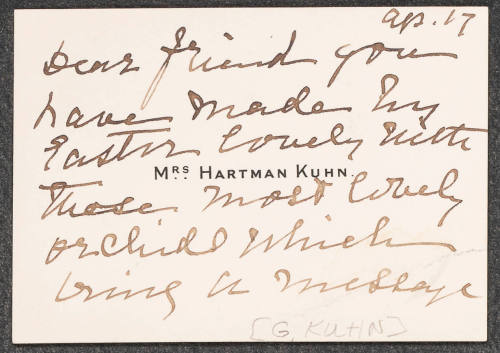 Ap. 17
Dear friend you
have made my
Easter lovely with
Mrs. Hartman Kuhn.
those most lovely
orchids which
bring a message
[G. KUHN]